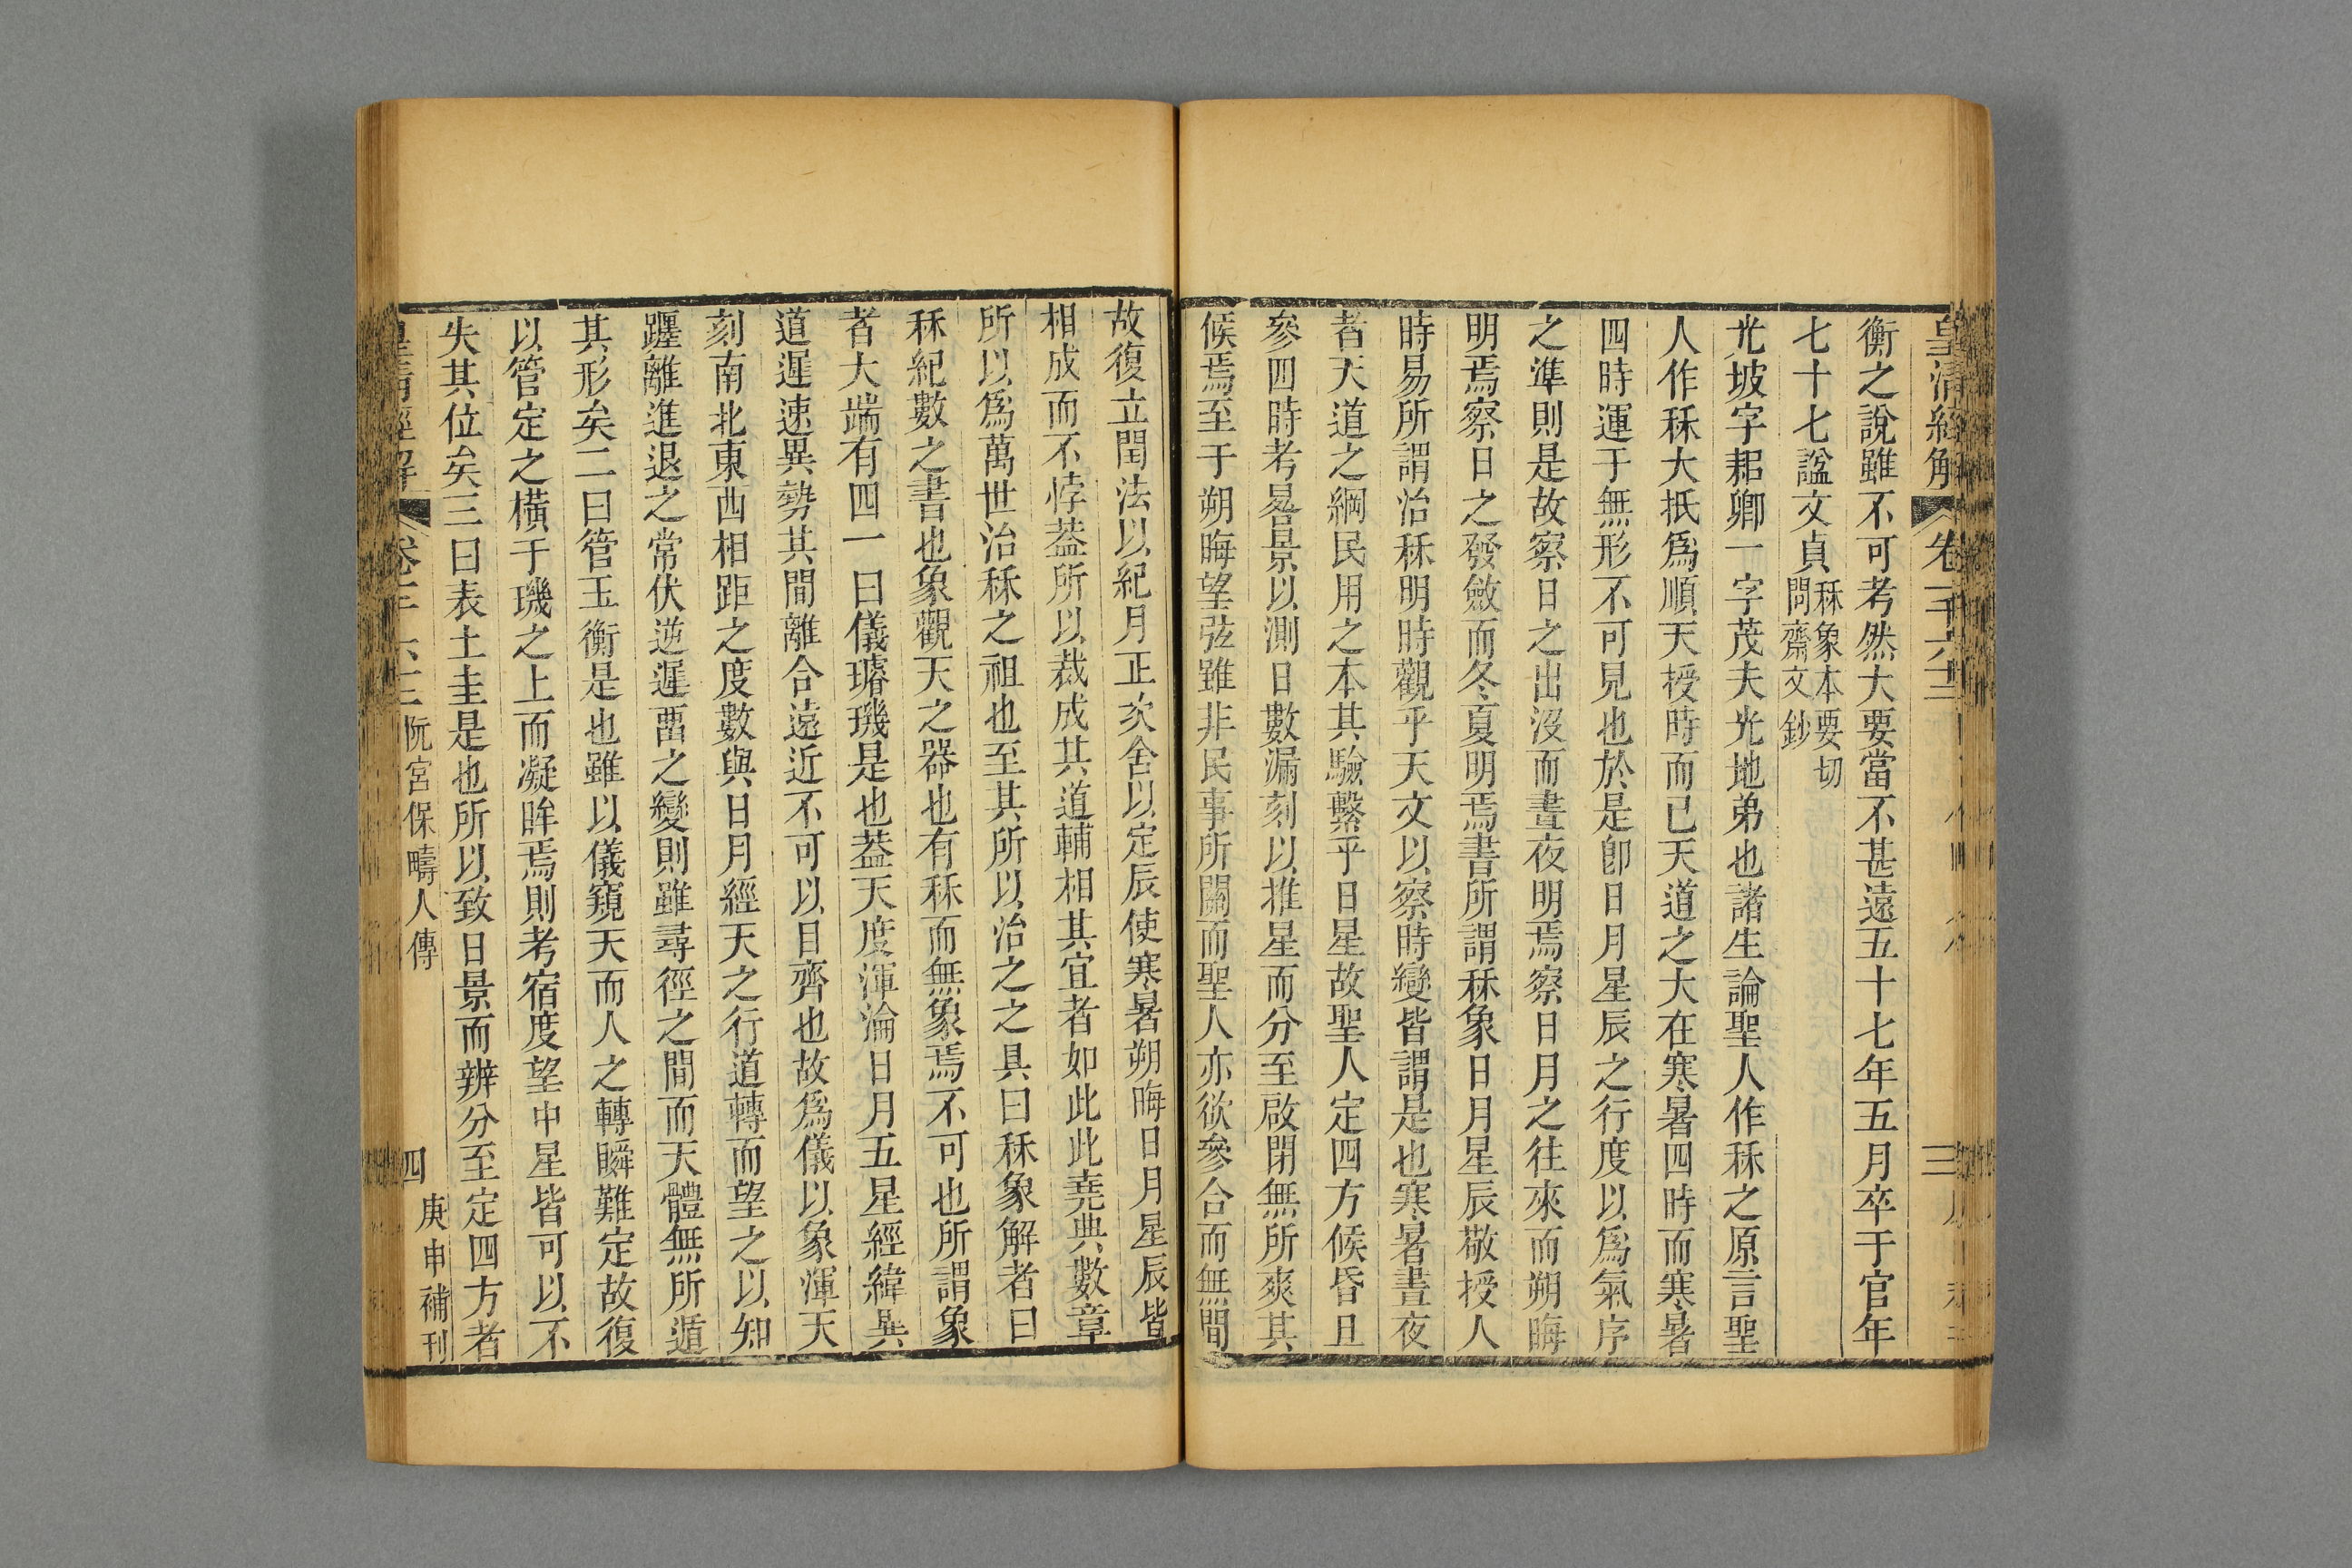 皇清經解
卷一千六十三
三
衡之說雖不可考然大要當不甚遠五十七年五月卒于官年
七十七諡文貞秝象本要切
問齋文鈔
光坡字耜卿一字茂夫光地弟也諸生論聖人作秝之原言聖
人作秝大抵爲順天授時而已天道之大在寒暑四時而寒暑
四時運于無形不可見也於是卽日月星辰之行度以爲氣序
之準則是故察日之出沒而晝夜明焉察日月之往來而朔晦
明焉察日之發斂而冬夏明焉書所謂秝象日月星辰敬授人
時易所謂治秝明時觀乎天文以察時變皆謂是也寒暑晝夜
者天道之綱民用之本其驗繫乎日星故聖人定四方候昏旦
參四時考晷景以測日數漏刻以推星而分至啟閉無所爽其
候焉至于朔晦望弦雖非民事所關而聖人亦欲參合而無間
故復立閏法以紀月正次舍以定辰使寒暑朔晦日月星辰皆
相成而不悖葢所以裁成其道輔相其宜者如此此堯典數章
所以爲萬世治秝之祖也至其所以治之之具曰秝象解者曰
秝紀數之書也象觀天之器也有秝而無象焉不可也所謂象
者大端有四一曰儀璿璣是也葢天度渾淪日月五星經緯異
道遲速異勢其間離合遠近不可以目齊也故爲儀以象渾天
刻南北東西相距之度數與日月經天之行道轉而望之以知
躔離進退之常伏逆遲畱之變則雖尋徑之間而天體無所遁
其形矣二曰管玉衡是也雖以儀窺天而人之轉瞬難定故復
以管定之橫于璣之上而凝眸焉則考宿度望中星皆可以不
失其位矣三曰表土圭是也所以致日景而辨分至定四方者
皇清經解
阮宮保疇人傳
四
庚申補刊